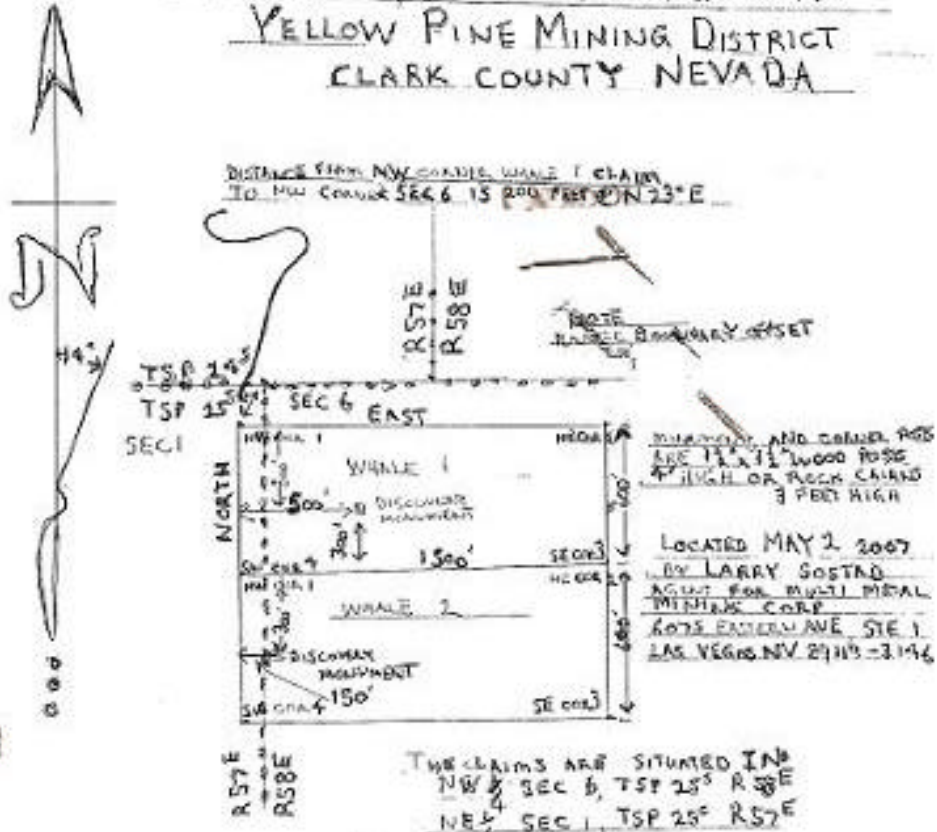 YELLOW PINE MINING DISTRICT
CLARK COUNTY NEVADA
DISTANCE FROM NW CORNER WHALE 1 CLAIM
TO NW CORNER SEC 6 IS 200 FEET @ N 23° E
N
R57E
R58E
NOTE
BOUNDARY OFFSET
TSP
TSP 25S
SEC 6
EAST
SEC 1
NORTH
NW COR 1
WHALE 1
500'
DISCOVERY
MONUMENT
300'
1500'
SE COR 3
NW COR 1
NE COR 2
600'
WHALE 2
300'
DISCOVERY
MONUMENT
150'
SW COR 4
SE COR 3
600'
MONUMENT AND CORNER POSTS
ARE WOOD POSTS
4' HIGH OR ROCK CAIRNS
3 FEET HIGH
LOCATED MAY 2 2007
BY LARRY SOSTAD
AGENT FOR MULTI METAL
MINING CORP
EASTERN AVE STE 1
LAS VEGAS NV
R57E
R58E
THE CLAIMS ARE SITUATED IN
NW 4 SEC 6, TSP 25S R58E
NE 4 SEC 1, TSP 25S R57E